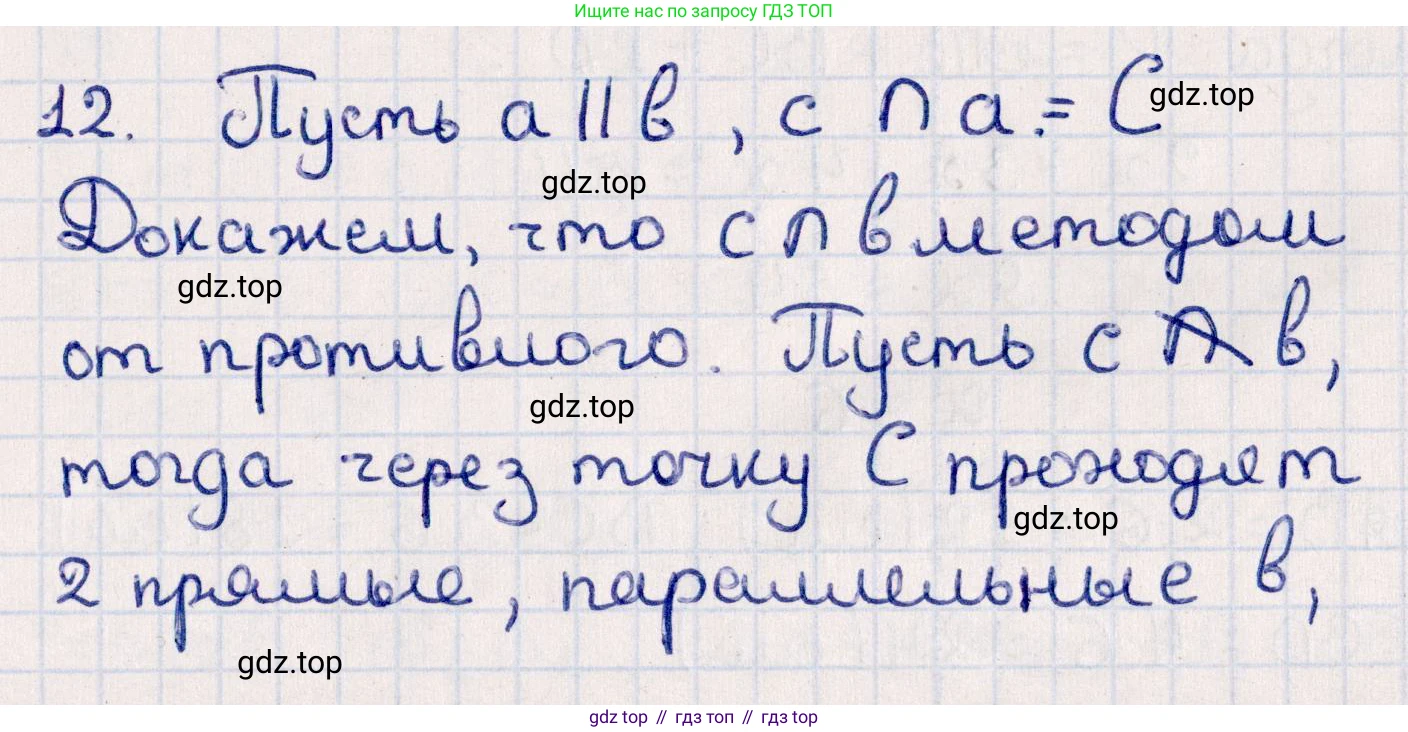 Ищите нас по запросу ГДЗ ТОП
12. Пусть a || b, c ∩ a = C
gdz.top
gdz.top
Докажем, что c ∩ b методом
gdz.top
от противного. Пусть c ∩̸ b,
gdz.top
тогда через точку C проходят
gdz.top
2 прямые, параллельные b,
gdz.top
gdz top // гдз топ // гдз top